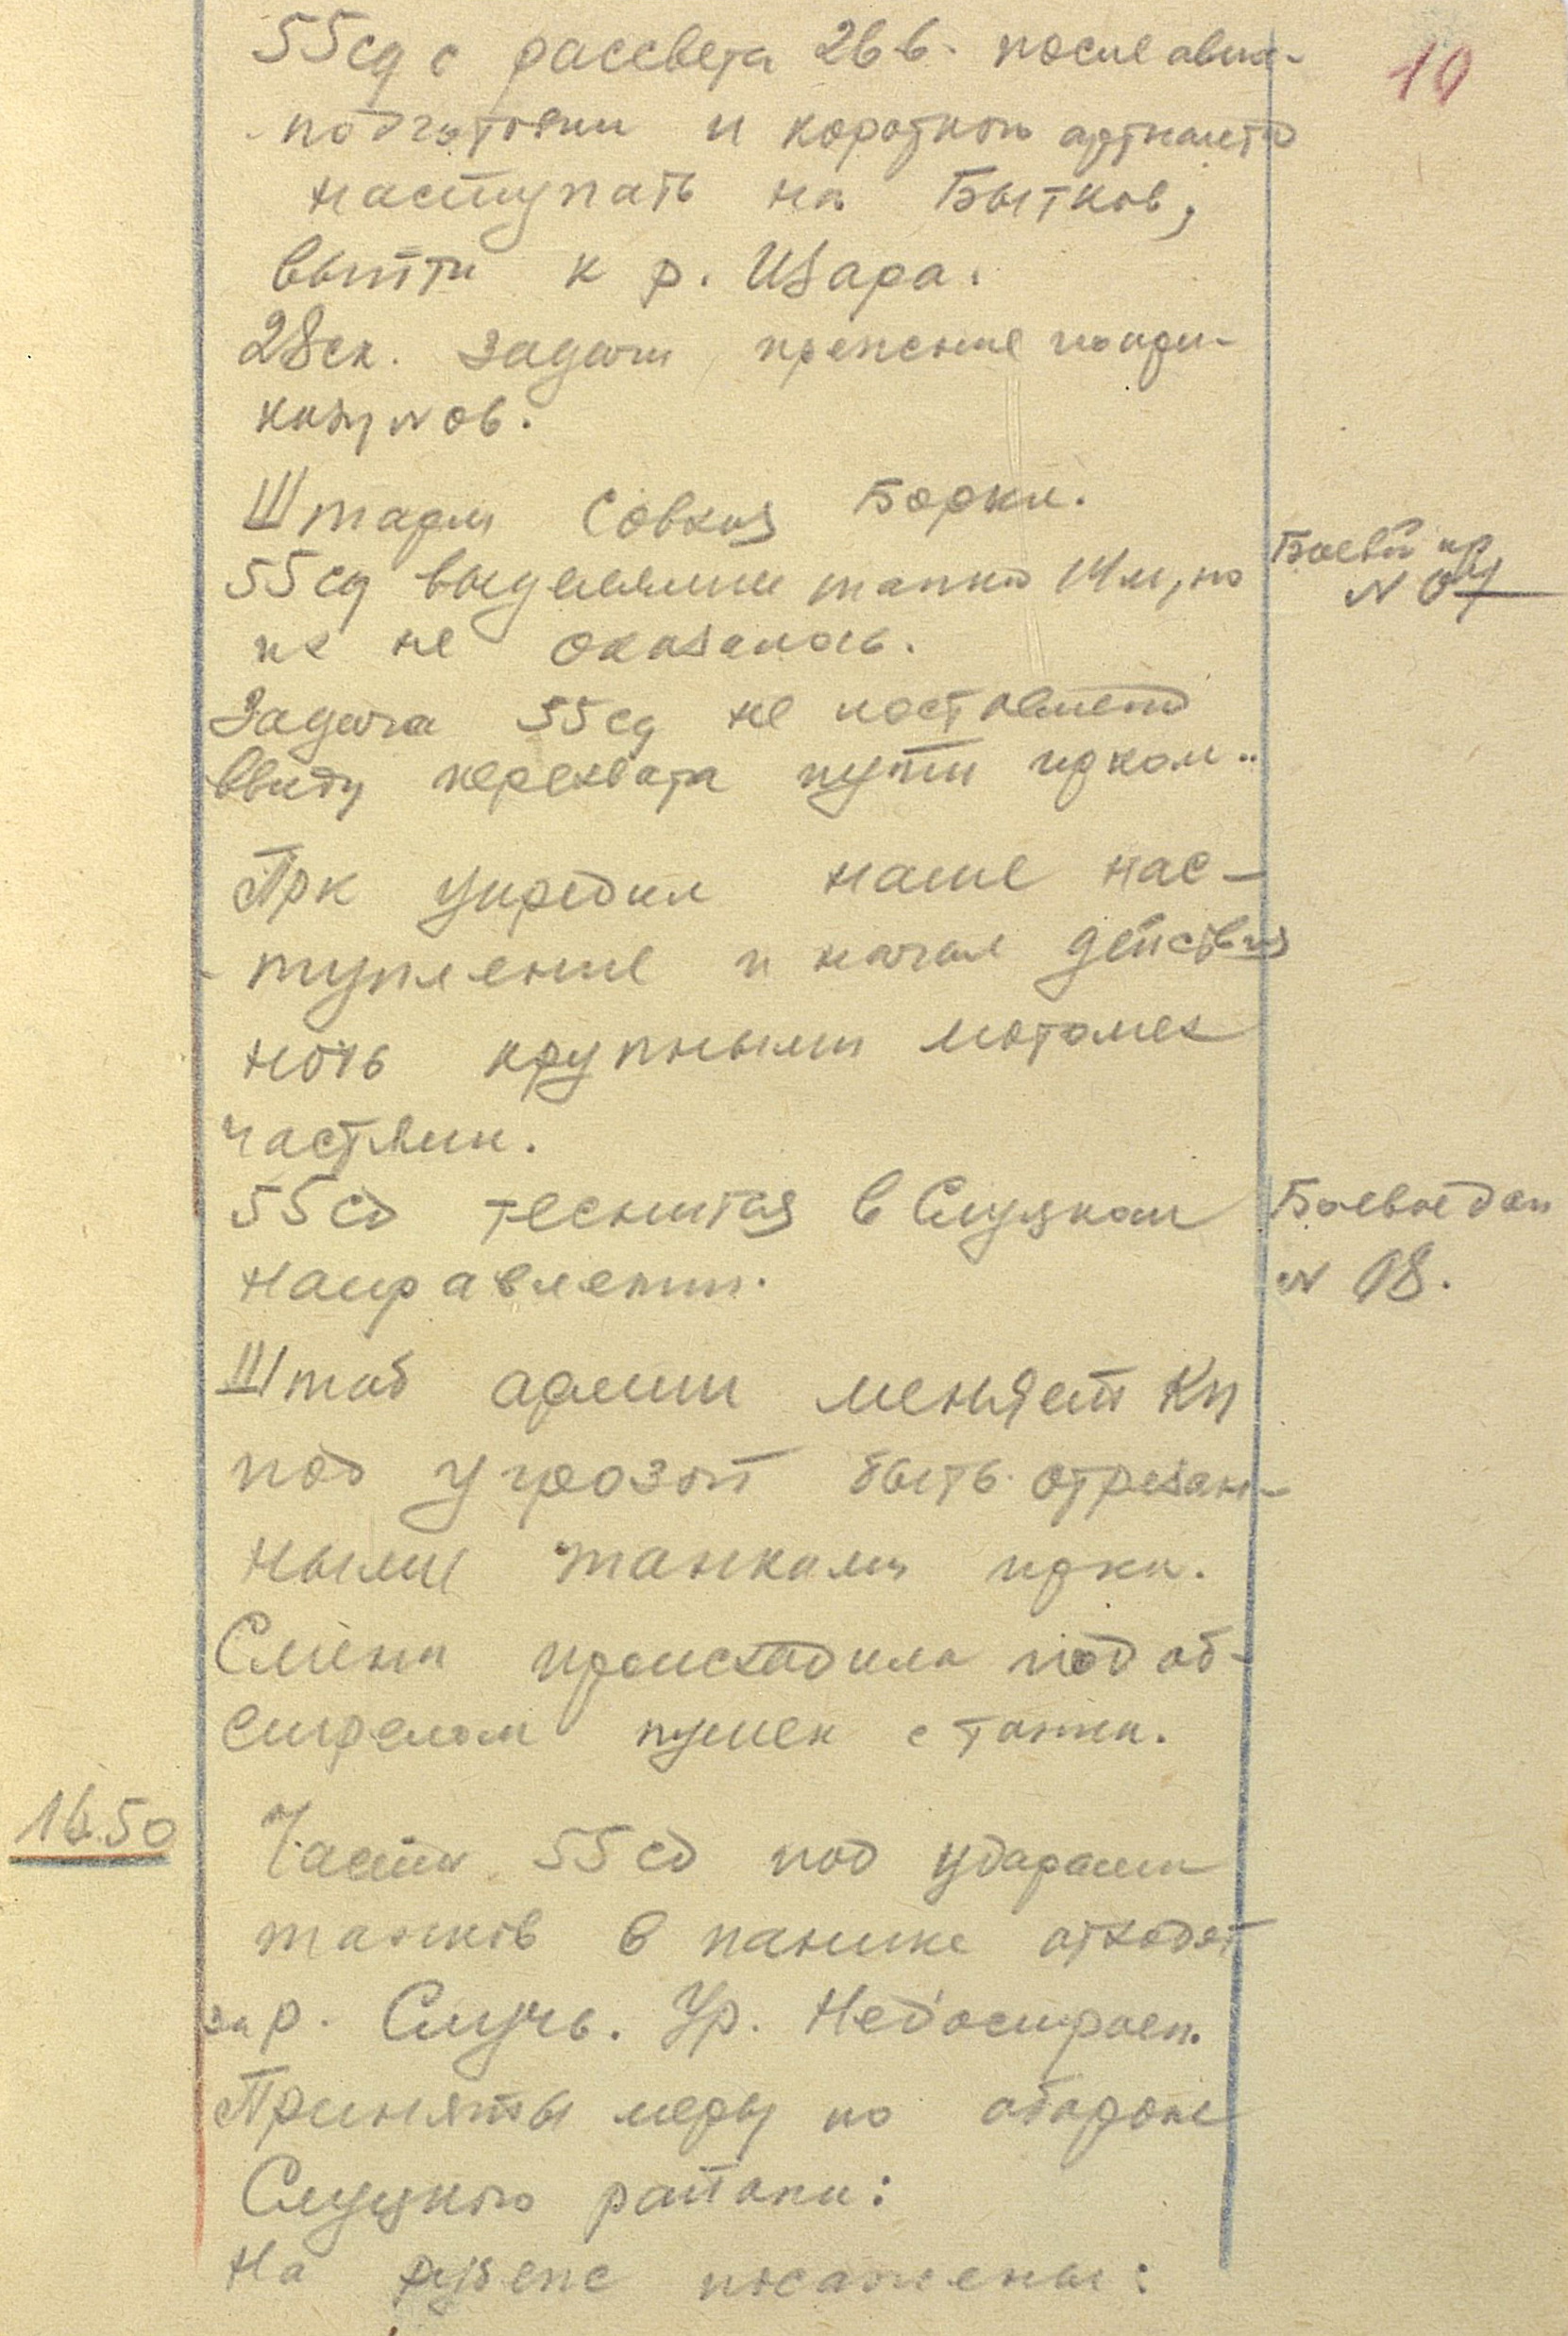 10
55сд с рассвета 26 6. после авиа-
подготовки и короткого артналета
наступать на Бытков,
выйти к р. Щара.
28ск. задачи прежние
Штарм Совхоз Борки.
Боевой пр
N 07
55сд выделялись танки 14м, но
их не оказалось.
Задача 55сд не поставлена
ввиду перехвата пути прком..
Прк упредил наше нас-
тупление и начал действия
ночь крупными мотомех
частями.
55сд теснится в Слуцком
Боевое дон
N 08.
направлении.
Штаб армии меняет Кп
под угрозой быть отрезан-
ными танками прка.
Смена происходила под об-
стрелом пушек с танка.
16.50
Части 55сд под ударами
танков в панике отходят
за р. Случь. Ур. Недостроен.
Приняты меры по обороне
Слуцкого района:
На рубеже посажены: